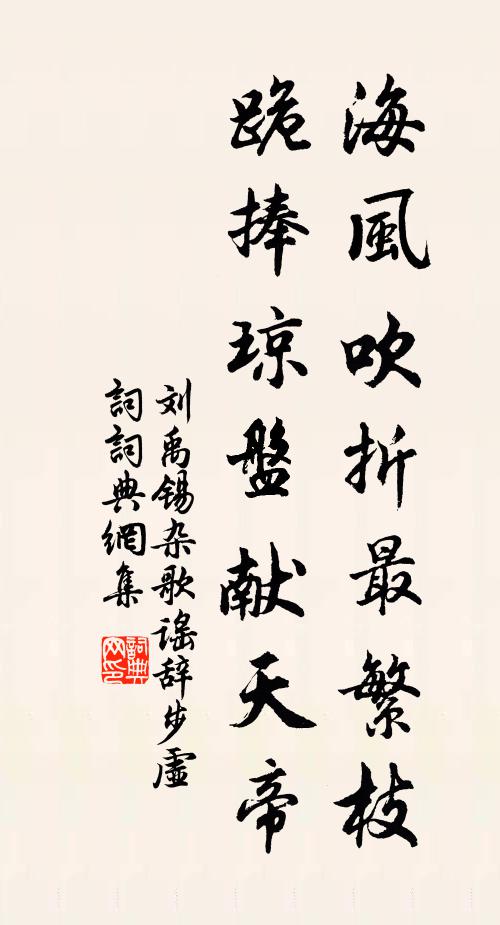 海風吹折最繁枝
跪捧琼盤献天帝
刘禹锡杂歌谣辞步虚
詞詞典網集
詞典
网印